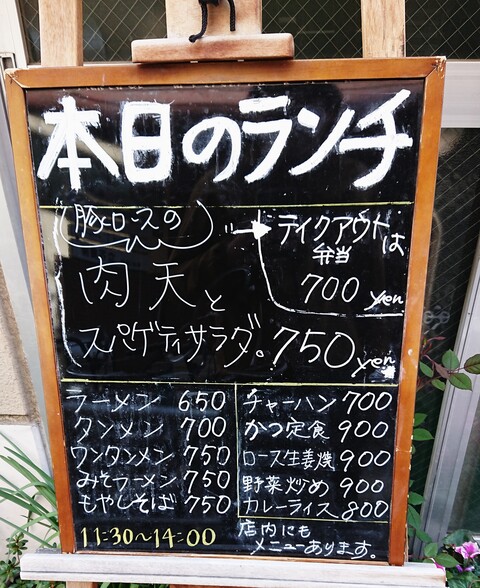 本日のランチ
豚ロースの
肉天と
スパゲティサラダ。750yen
テイクアウトは
弁当
700yen
ラーメン 650
タンメン 700
ワンタンメン 750
みそラーメン 750
もやしそば 750
11:30〜14:00
チャーハン 700
かつ定食 900
ロース生姜焼 900
野菜炒め 900
カレーライス 800
店内にも
メニューあります。